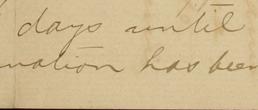 days until
nation has been